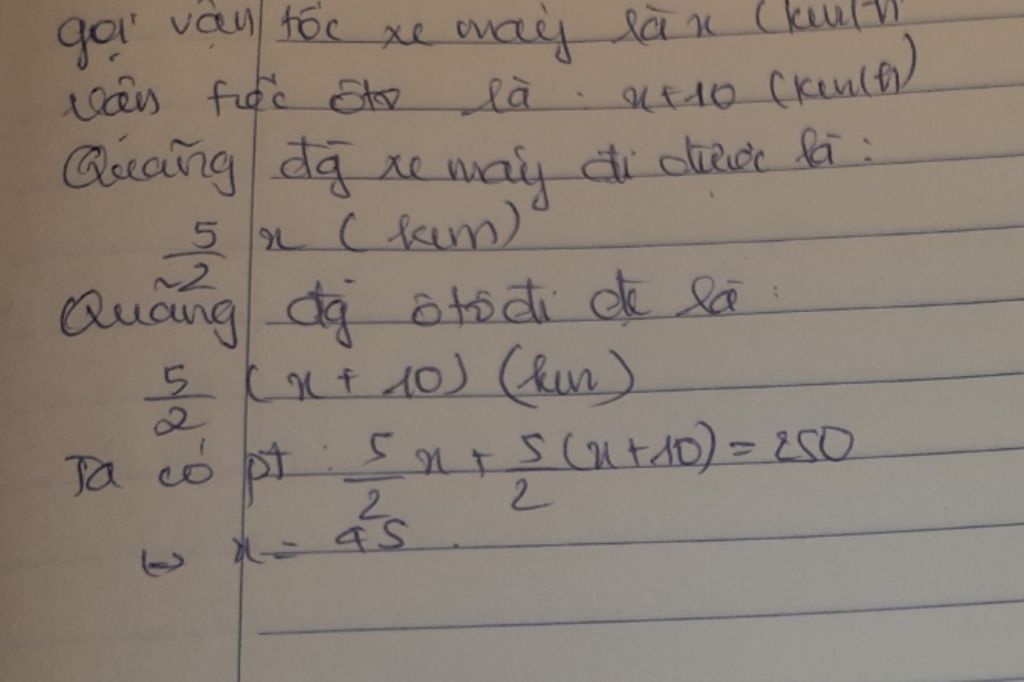 gọi vận tốc xe máy là x (km/h)
vận tốc ôtô là : x+10 (km/h)
Quãng đg xe máy đi được là :
5/2 x (km)
Quãng đg ôtô đi đc là :
5/2 (x + 10) (km)
Ta có pt : 5/2 x + 5/2 (x+10) = 250
⇔ x = 45 .